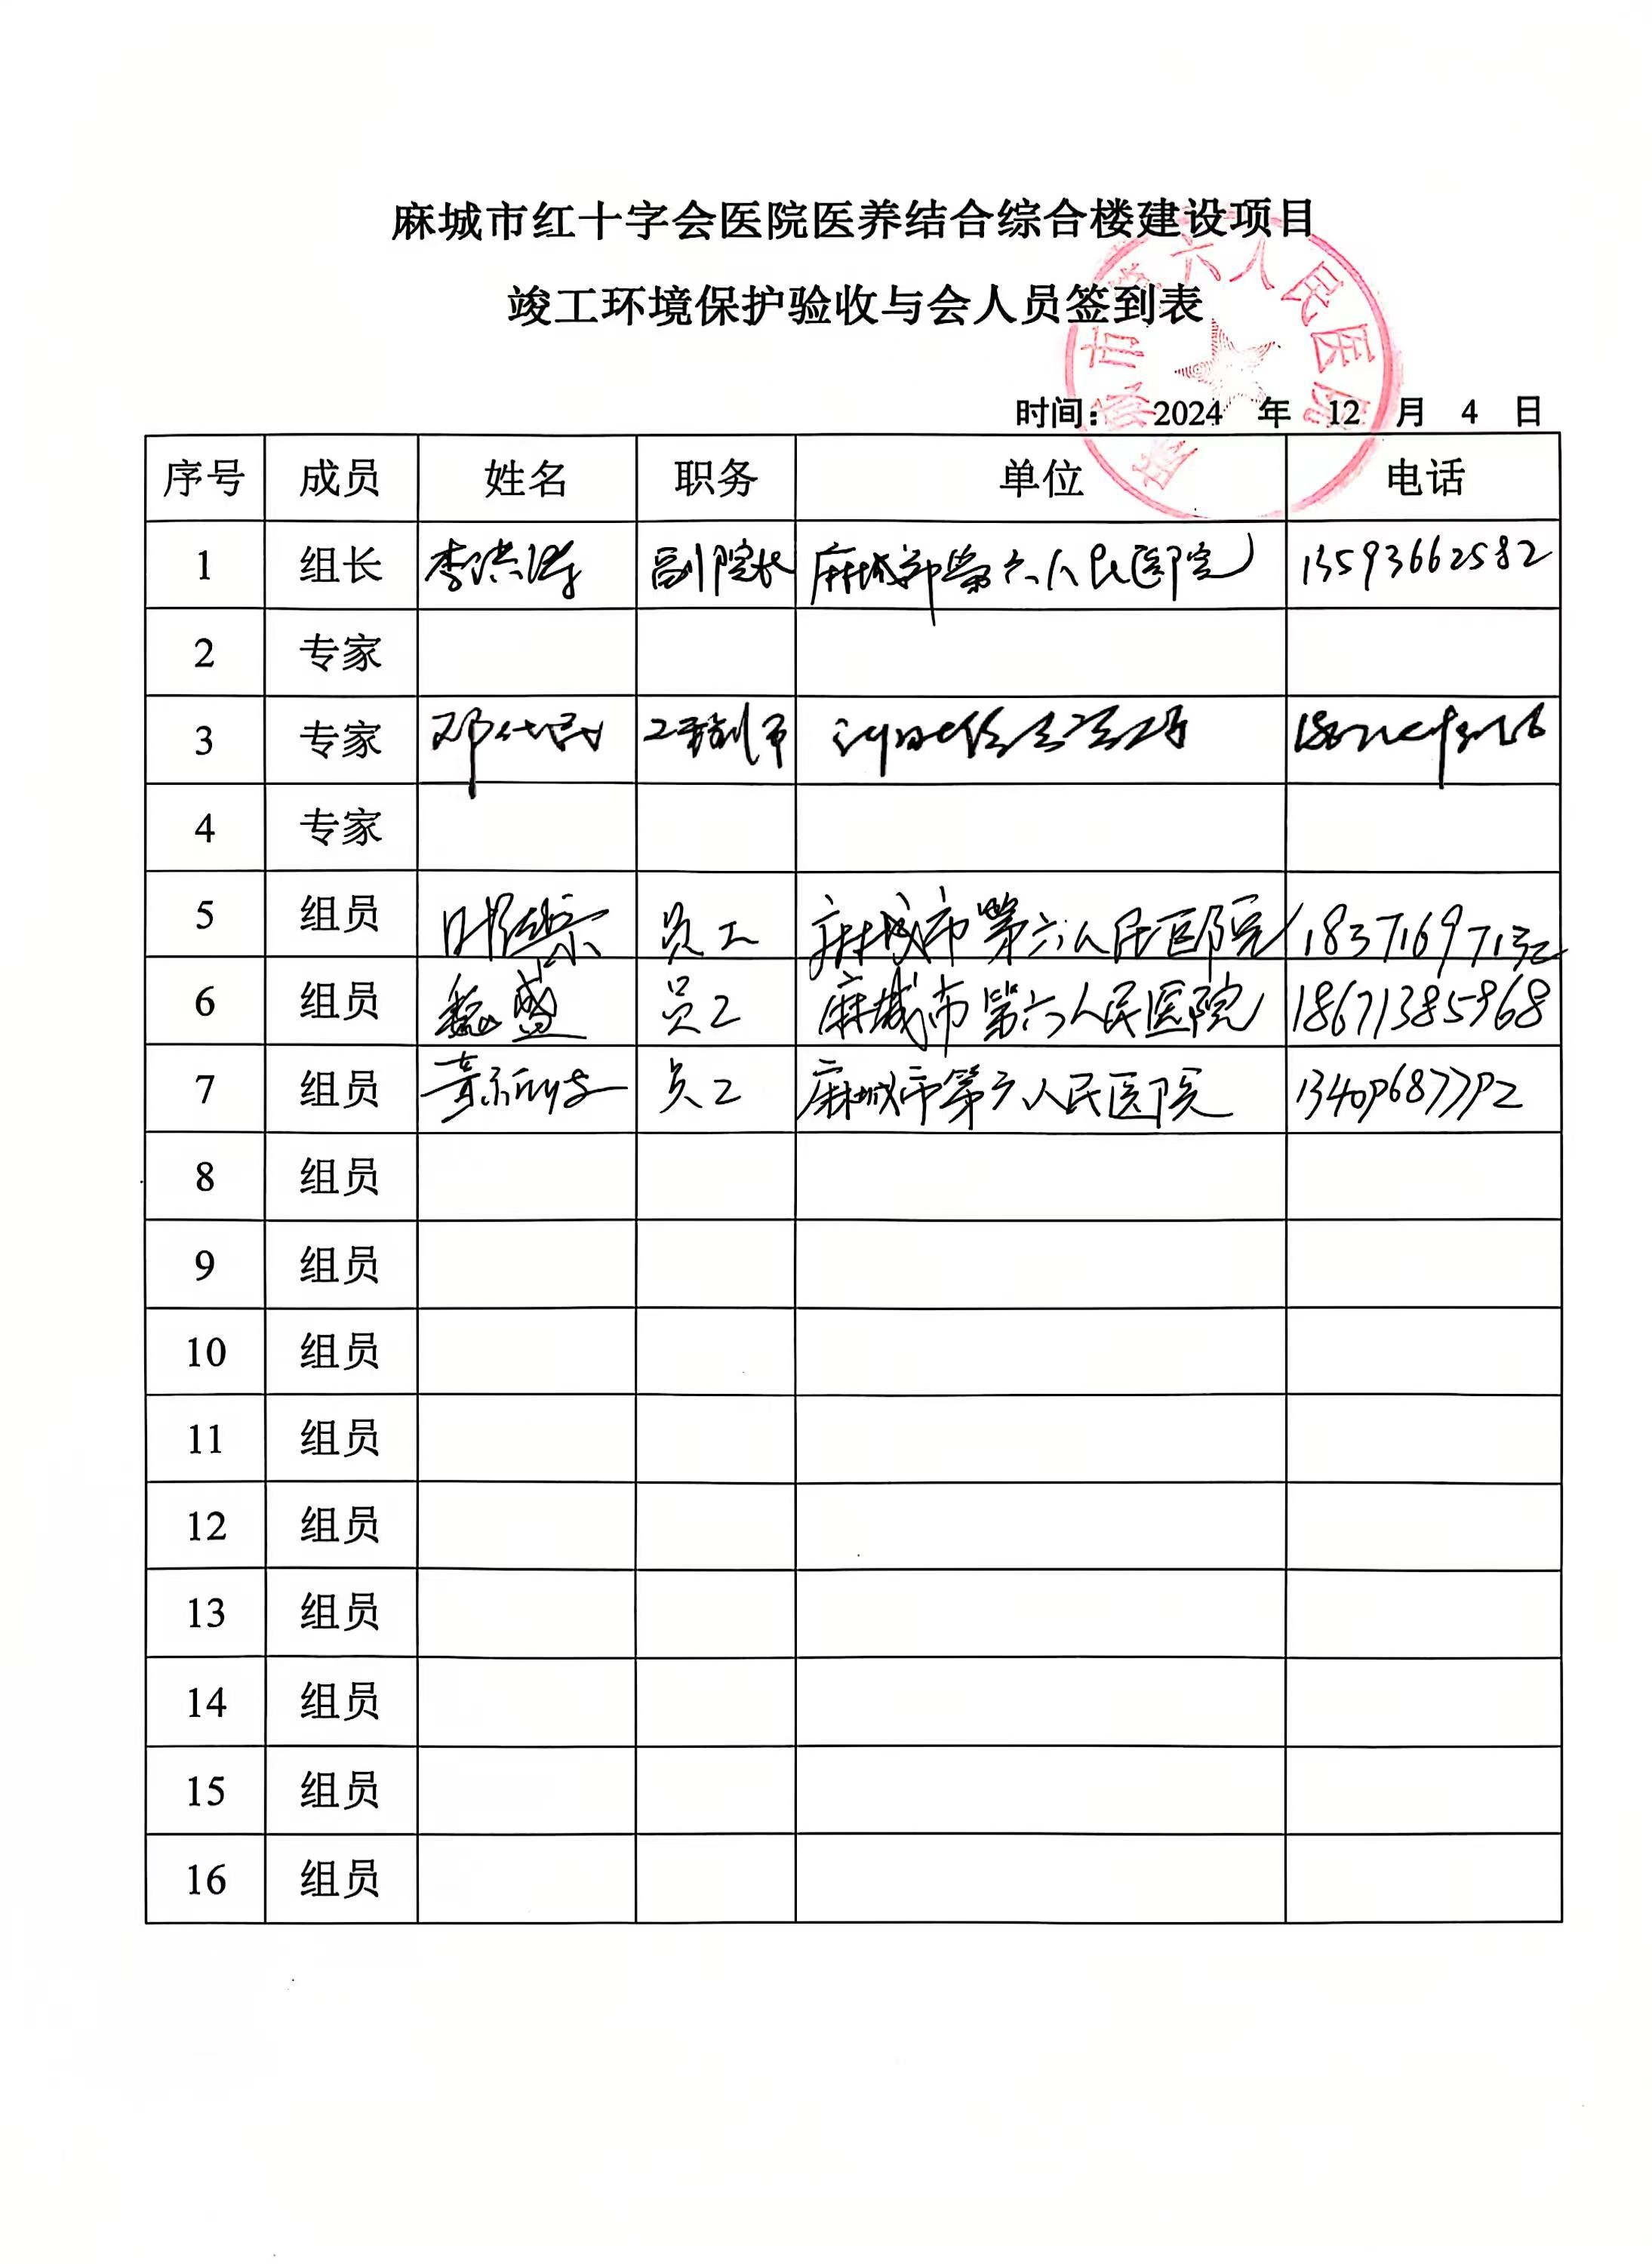 麻城市红十字会医院医养结合综合楼建设项目
竣工环境保护验收与会人员签到表
市第六人民医院
时间： 2024 年 12 月 4 日
序号 成员 姓名 职务 单位 电话
1 组长 李洪涛 副院长 麻城市第六人民医院 13593662582
2 专家
3 专家 邓代
4 专家
5 组员 员工 麻城市第六人民医院
6 组员 魏盛 员工 麻城市第六人民医院 18671385968
7 组员 员工 麻城市第六人民医院 13409687792
8 组员
9 组员
10 组员
11 组员
12 组员
13 组员
14 组员
15 组员
16 组员